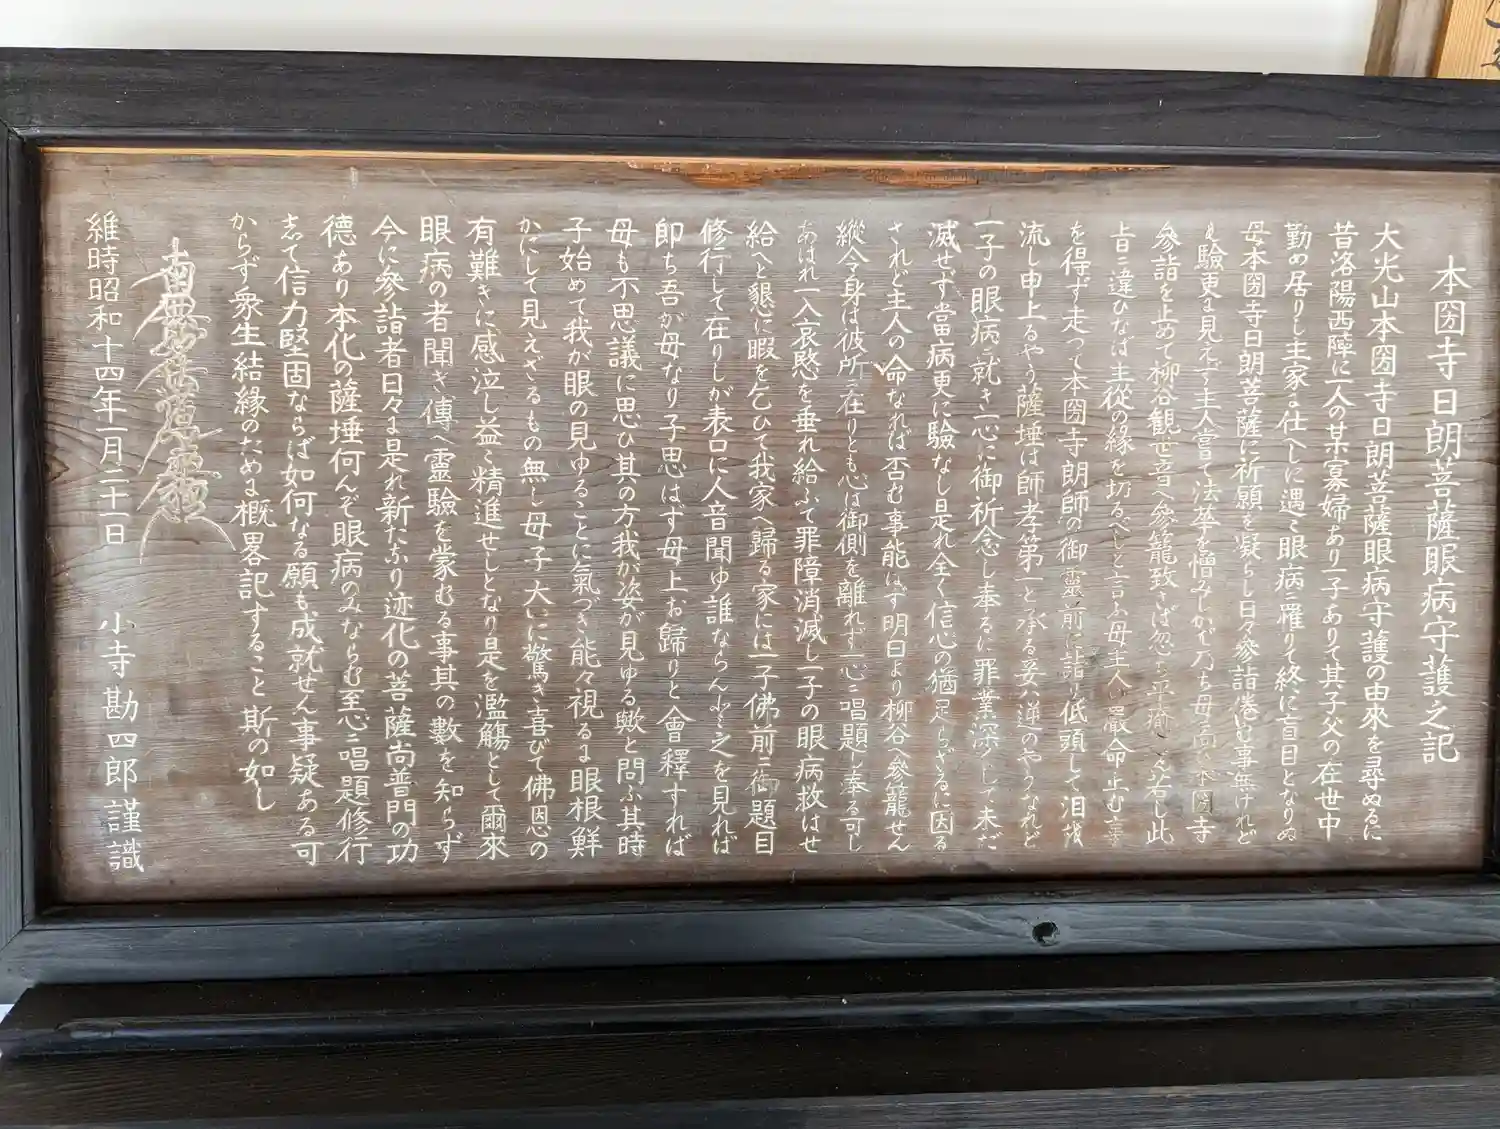 本圀寺日朗菩薩眼病守護之記
大光山本圀寺日朗菩薩眼病守護の由來を尋ぬるに
昔洛陽西陣に一人の某寡婦あり一子ありて其子父の在世中
勤め居りし主家に仕へしに遇々眼病に罹りて終に盲目となりぬ
母本圀寺日朗菩薩に祈願を凝らし日々參詣倦む事無けれど
も驗更に見えず主人嘗て法華を憎みしかば乃ち母
參詣を止めて柳谷観世音へ參籠致さば忽ち平癒 若し此
旨に違ひなば主從の縁を切るべしと言ふ母主人の嚴命止む事
を得ず走って本圀寺朗師の御靈前に詣り低頭して泪
流し申上るやう薩埵は師孝第一と承る妾は逆のやうなれど
一子の眼病に就き一心に御祈念し奉るに罪業深くして未だ
滅せず當病更に驗なし是れ全く信心の猶足らざるに因る
されど主人の命なれば否む事能はず明日より柳谷へ參籠せん
縱令身は彼所に在りとも心は御側を離れず一心に唱題し奉る可し
あはれ一入哀愍を垂れ給ふて罪障消滅し一子の眼病救はせ
給へと懇に暇を乞ひて我家へ歸る家には一子佛前に御題目
修行して在りしが表口に人音聞ゆ誰ならんと之を見れば
即ち吾が母なり子思はず母上お歸りと會釋すれば
母も不思議に思ひ其の方我が姿が見ゆる歟と問ふ其時
子始めて我が眼の見ゆることに氣づき能々視るに眼根鮮
かにして見えざるもの無し母子大いに驚き喜びて佛恩の
有難きに感泣し益々精進せしとなり是を濫觴として爾來
眼病の者聞き傳へ靈驗を蒙むる事其の數を知らず
今に參詣者日々に是れ新たなり迹化の菩薩尚普門の功
德あり本化の薩埵何んぞ眼病のみならむ至心に唱題修行
して信力堅固ならば如何なる願も成就せん事疑ある可
からず衆生結縁のために概畧記すること斯の如し
南無妙法蓮華經
維時昭和十四年一月二十一日　小寺勘四郎謹識